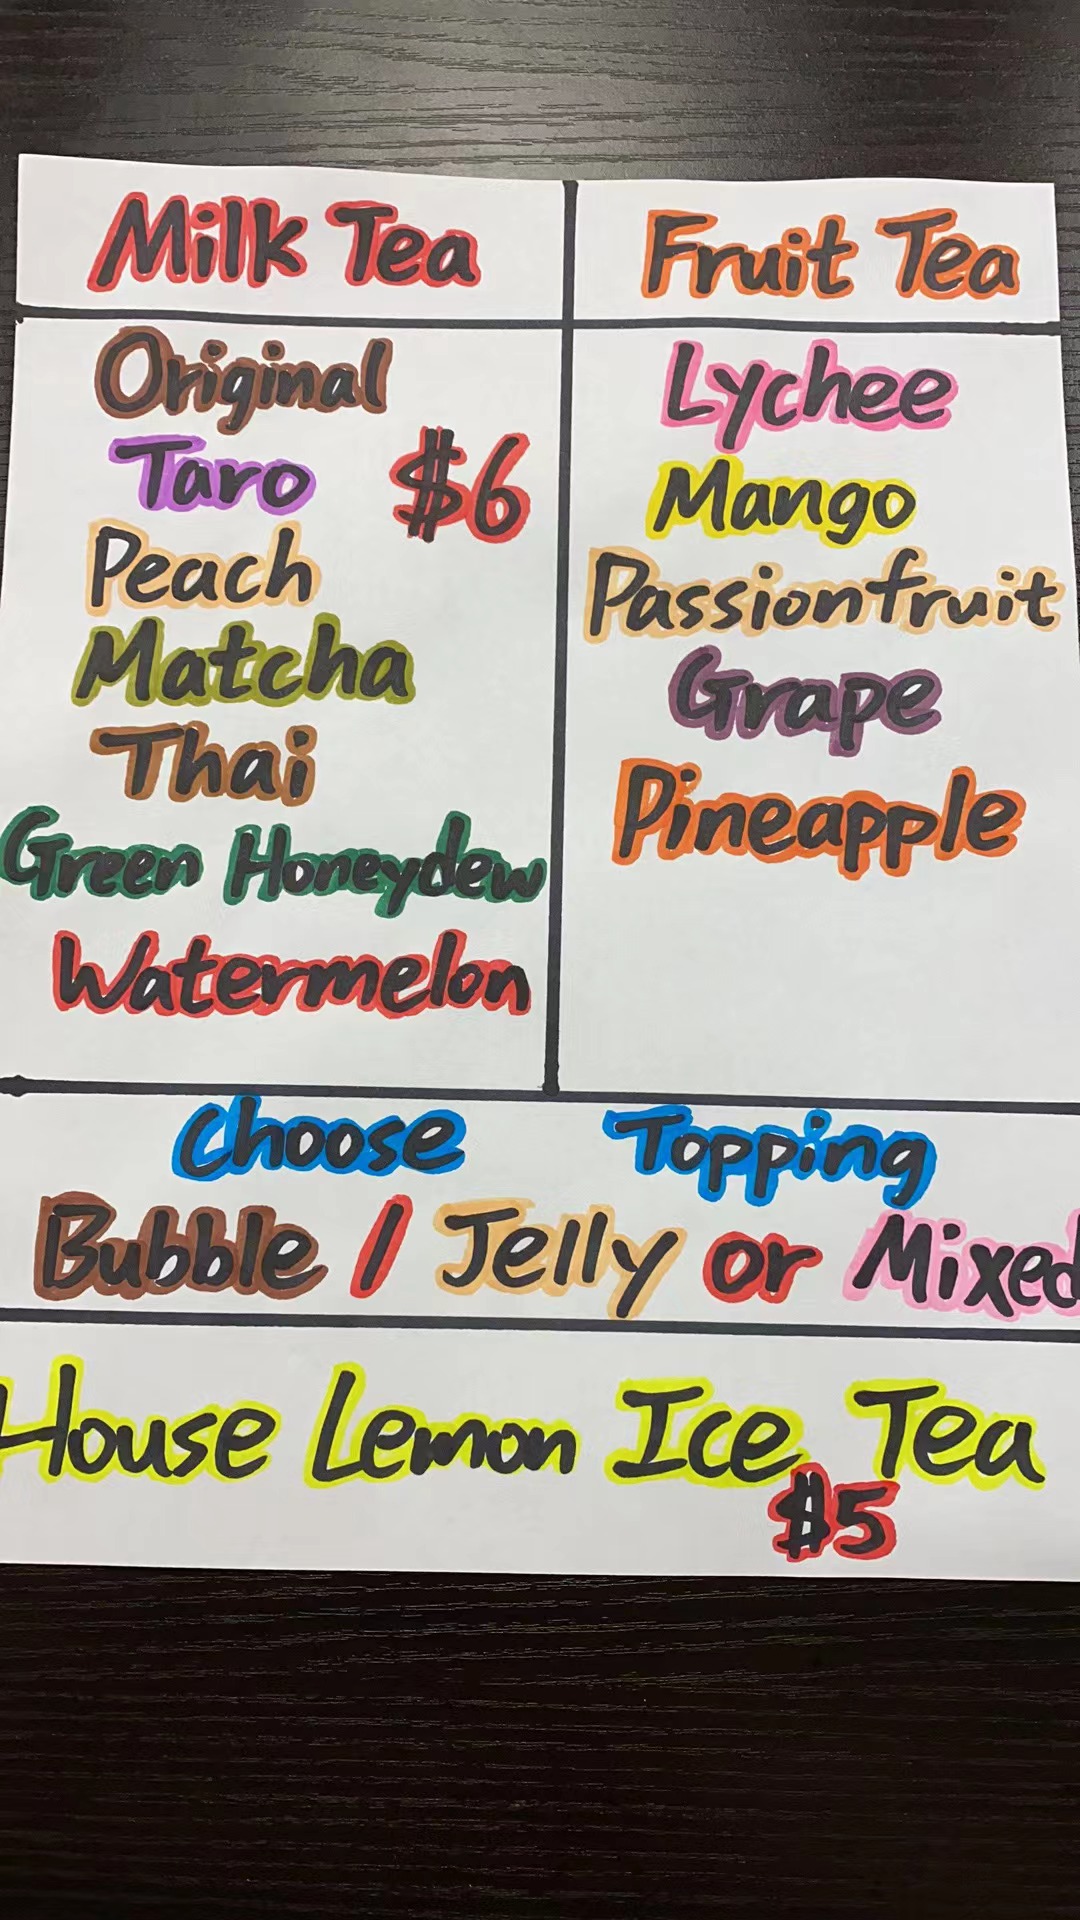 Milk Tea
Original
Taro $6
Peach
Matcha
Thai
Green Honeydew
Watermelon
Fruit Tea
Lychee
Mango
Passionfruit
Grape
Pineapple
Choose Topping
Bubble / Jelly or Mixed
House Lemon Ice Tea
$5